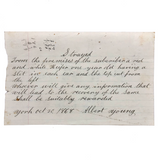 Strayed
From the premises of the subscriber a red
and white Heifer one year old having a
slit in each ear and the tip cut from
the left
Whoever will give any information that
will lead to the recovery of the same
Shall be suitably rewarded
Oct 10 1868 Albert Young